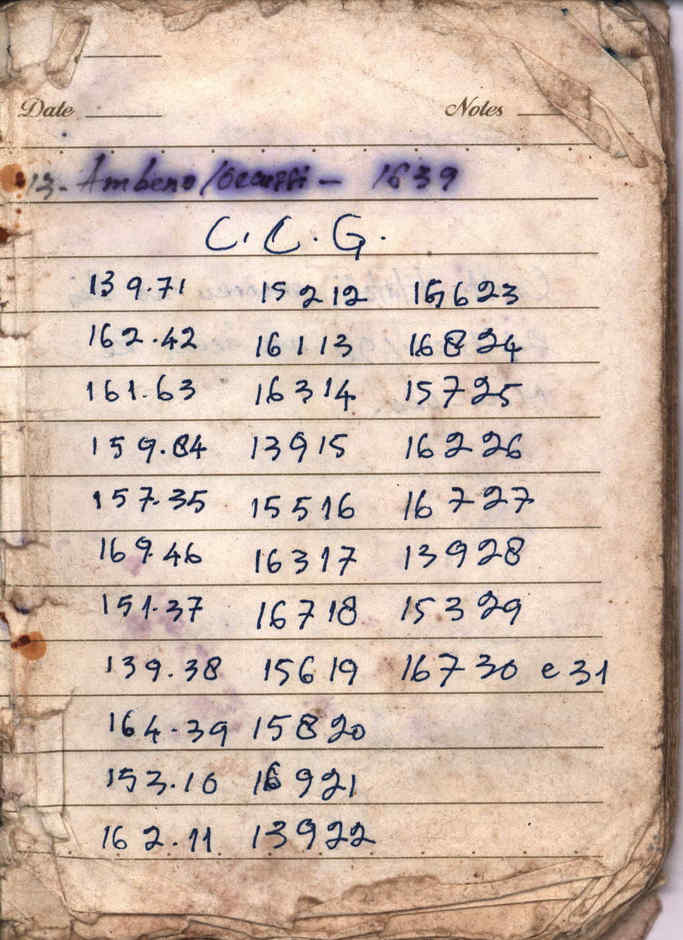 Date Notes
13- Ambeno/Oecussi - 1639
C. C. G.
139.71 15212 15623
162.42 16113 16824
161.63 16314 15725
159.84 13915 16226
157.35 15516 16727
169.46 16317 13928
151.37 16718 15329
139.38 15619 16730 e 31
164.39 15820
153.10 16921
162.11 13922